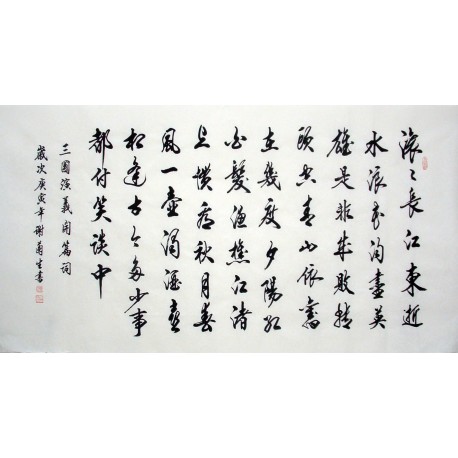 滚々長江東逝
水浪花淘盡英
雄是非成敗轉
頭空青山依舊
在幾度夕陽紅
白髮漁樵江渚
上慣看秋月春
風一壺濁酒喜
相逢古今多少事
都付笑談中
三國演義開篇詞
歲次庚寅年謝生書